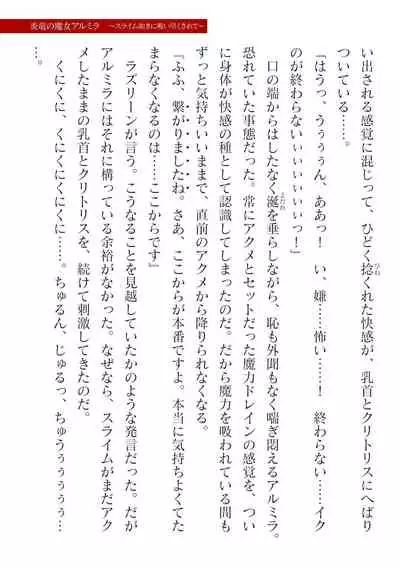 炎竜の魔女アルミラ　～スライム如きに吸い尽くされて～
い出される感覚に混じって、ひどく捻くれた快感が、乳首とクリトリスにへばり
ついている……。
「はうっ、うぅぅぅん、ああっ！　い、嫌……怖い……！　終わらない……イク
のが終わらないぃぃぃぃぃぃっ！」
　口の端からはしたなく涎を垂らしながら、恥も外聞もなく喘ぎ悶えるアルミラ。
恐れていた事態だった。常にアクメとセットだった魔力ドレインの感覚を、つい
に身体が快感の種として認識してしまったのだ。だから魔力を吸われている間も
ずっと気持ちいいままで、直前のアクメから降りられなくなる。
『ふふ、繋がりましたね。さあ、ここからが本番ですよ。本当に気持ちよくてた
まらなくなるのは……ここからです』
　ラズリーンが言う。こうなることを見越していたかのような発言だった。だが
アルミラにはそれに構っている余裕がなかった。なぜなら、スライムがまだアク
メしたままの乳首とクリトリスを、続けて刺激してきたのだ。
　くにくに、くにくにくにくに……。ちゅるん、じゅるっ、ちゅうぅぅぅぅぅ…
…。